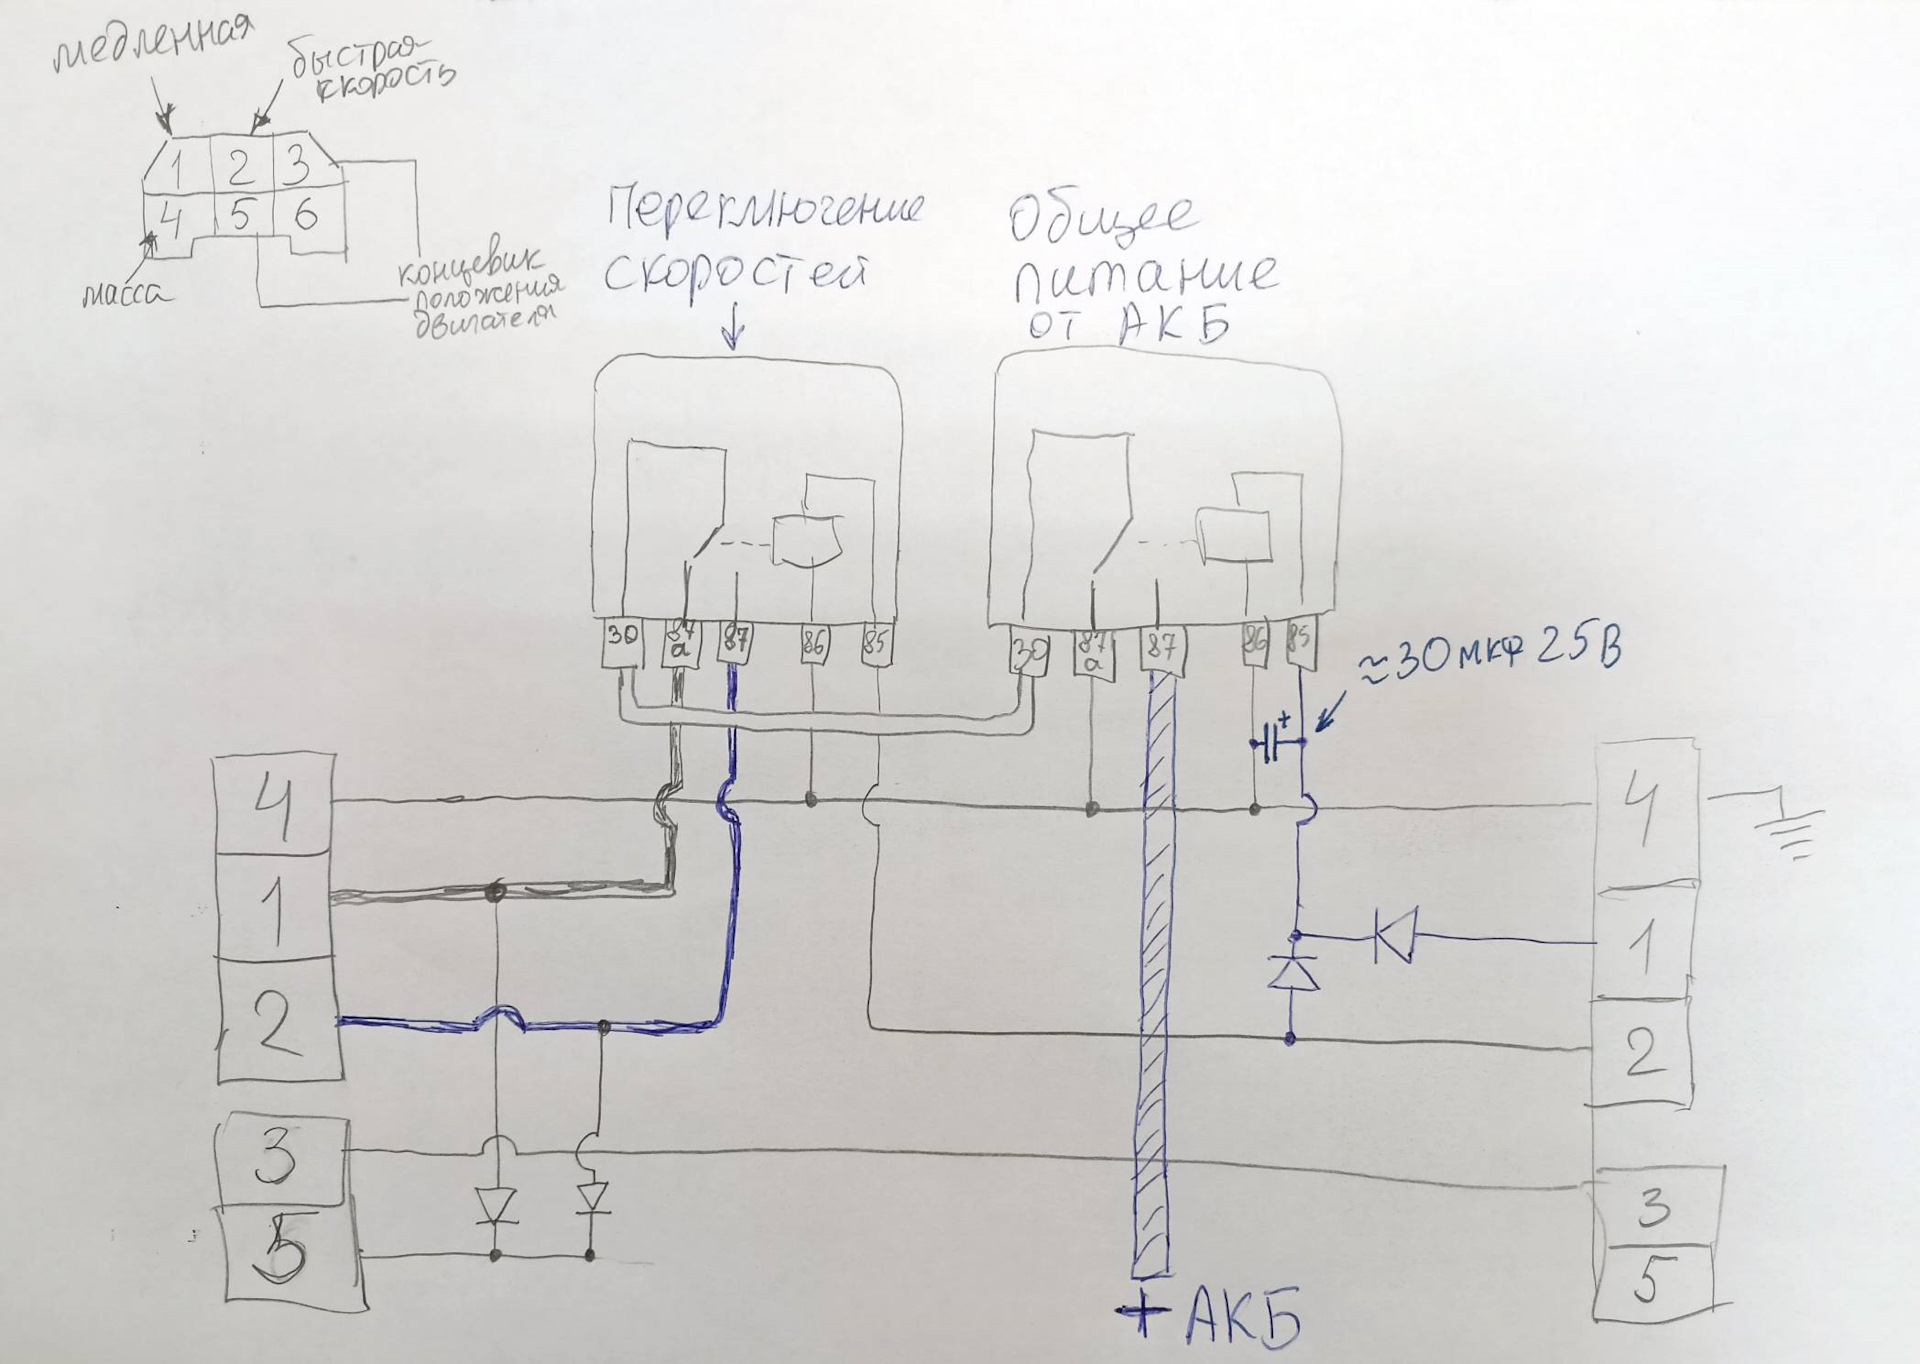 медленная
быстрая
скорость
1 2 3
4 5 6
масса
концевик
положения
двигателя
Переключение
скоростей
Общее
питание
от АКБ
30 87а 87 86 85
30 87а 87 86 85
≈30мкф 25В
+
4
1
2
3
5
4
1
2
3
5
+ АКБ